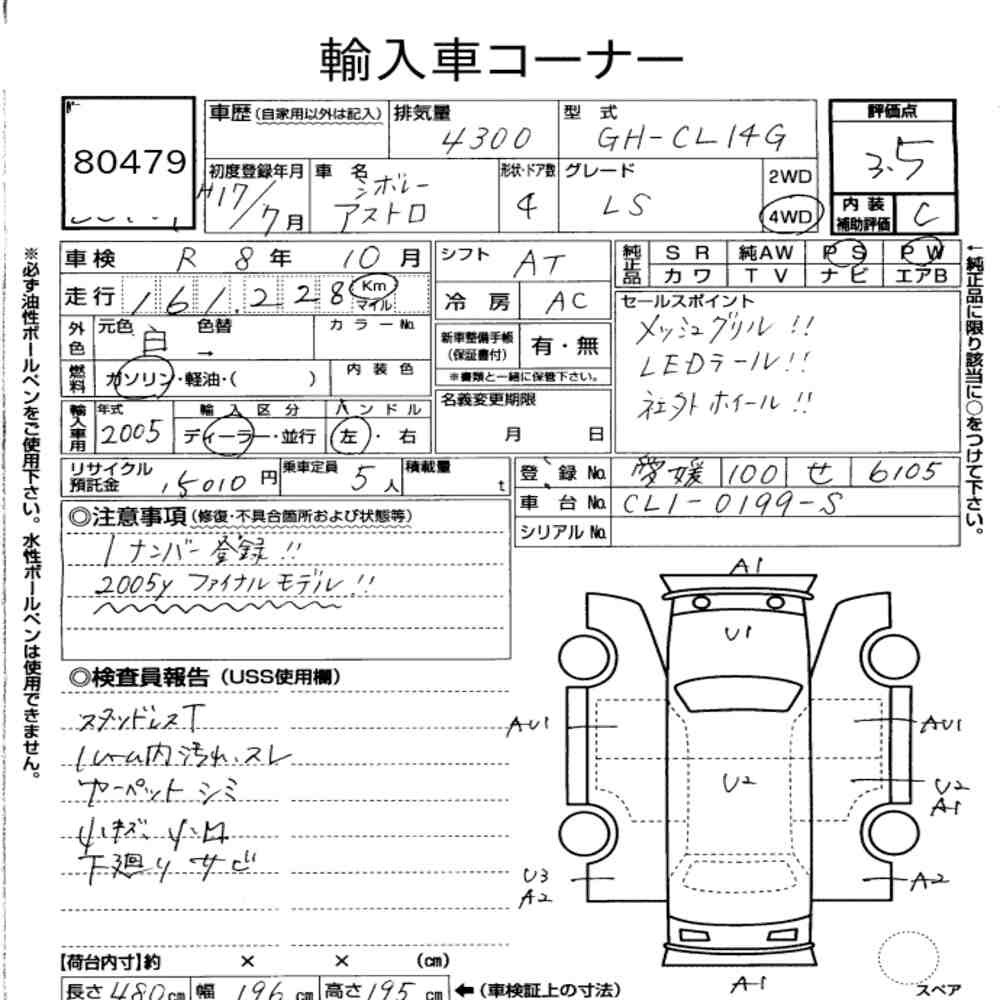 輸入車コーナー
80479
車歴(自家用以外は記入) 排気量 4300 型式 GH-CL14G 評価点 3.5
初度登録年月 H17/7月 車名 シボレー アストロ 形状・ドア数 4 グレード LS 2WD 4WD 内装補助評価 C
車検 R 8年 10月 シフト AT 純正品 SR 純AW PS PW
カワ TV ナビ エアB
走行 161,228 Km マイル 冷房 AC
外色 元色 白 色替 → カラーNo. 新車整備手帳(保証書付) 有・無
※書類と一緒に保管下さい。
燃料 ガソリン・軽油・( ) 内装色 名義変更期限 月 日
セールスポイント
メッシュグリル!!
LEDテール!!
社外ホイール!!
輸入車用 年式 2005 輸入区分 ディーラー・並行 ハンドル 左・右
リサイクル預託金 15010円 乗車定員 5人 積載量 t
登録No. 愛媛 100 せ 6105
車台No. CL1-0199-S
シリアルNo.
◎注意事項(修復・不具合箇所および状態等)
1ナンバー登録!!
2005y ファイナルモデル!!
◎検査員報告(USS使用欄)
スタッドレスT
内汚れ、スレ
カーペットシミ
下廻りサビ
A1
U1
AU1 AU1
U2 U2
A1
U3
A2 A2
A1
スペア
【荷台内寸】約 × × (cm)
長さ 480cm 幅 196cm 高さ 195cm ←(車検証上の寸法)
※必ず油性ボールペンをご使用下さい。水性ボールペンは使用できません。
←純正品に限り該当に○をつけて下さい。